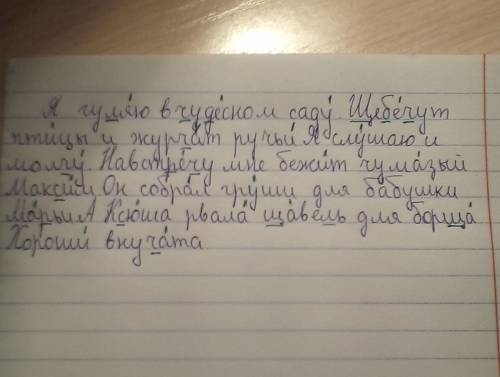 Я гуля́ю в чуде́сном саду́ Щебе́чут
пти́цы и журча́т ручьи́ Я слу́шаю и
молчу́. Навстре́чу мне бежи́т чума́зый
Макси́м Он собра́л гру́ши для ба́бушки
Ма́рьи А Ксю́ша рвала́ ща́вель для борща́
Хоро́ши внуча́та